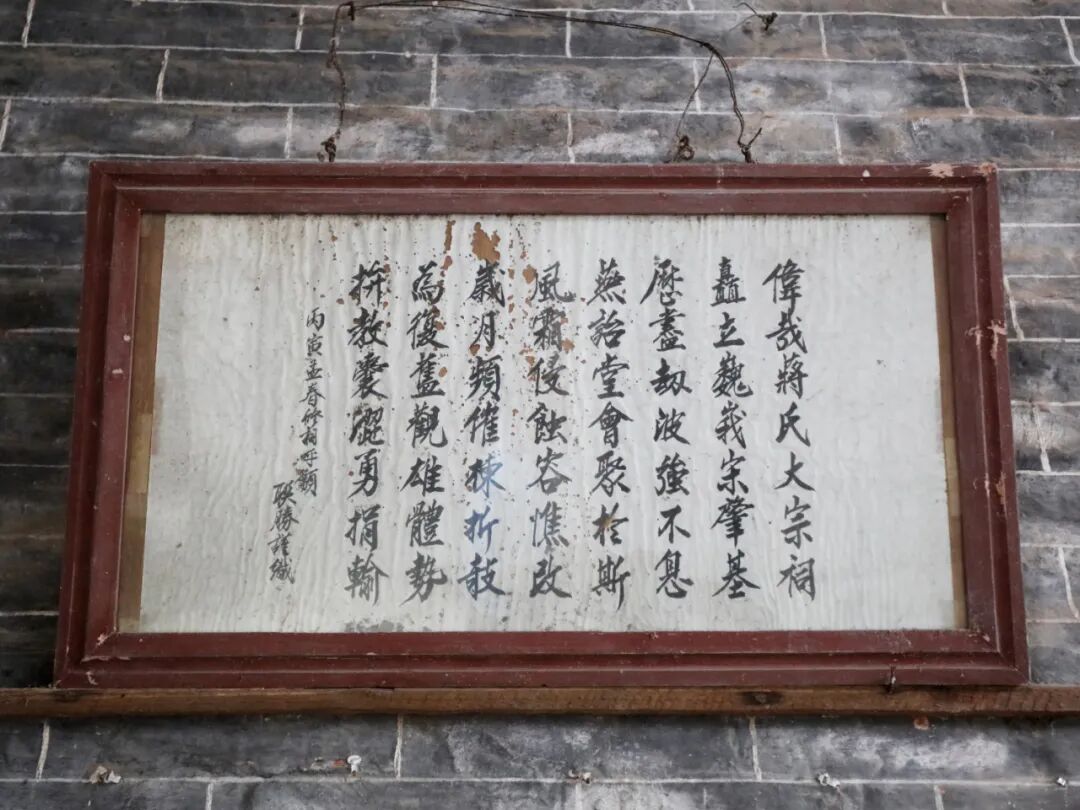 偉哉蔣氏大宗祠
矗立巍峩宗肇基
歷盡劫波強不息
燕詒堂會聚於斯
風霜侵蝕容憔改
歲月頻催棟折敧
為復舊觀雄體勢
拚教囊罄勇捐輸
丙寅孟春修祠呼籲
联勝謹識